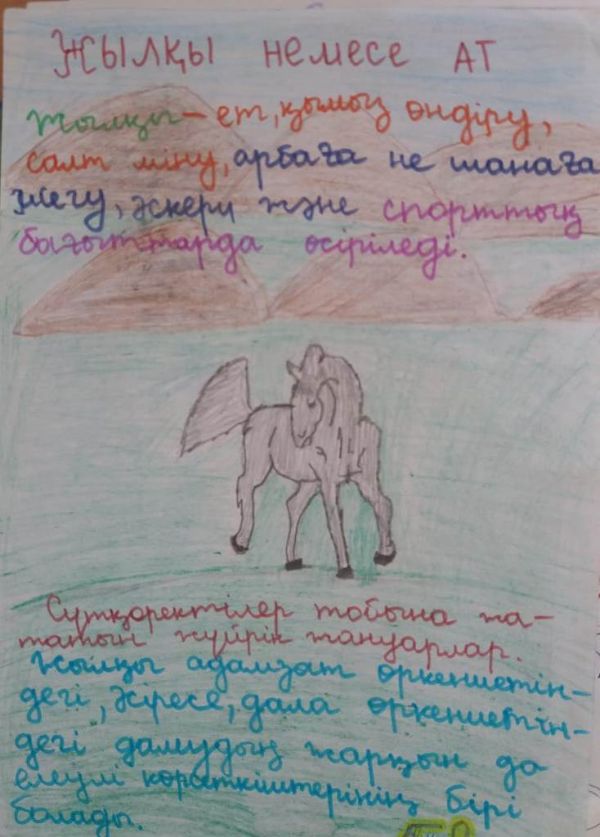 Жылқы немесе ат
Жылқы – ет, қымыз өндіру,
салт міну, арбаға не шанаға
жегу, әскери және спорттық
бағыттарда өсіріледі.
Сүтқоректілер тобына жа-
татын жүйрік жануарлар.
Жылқы адамзат өркениетін-
дегі, әсіресе, дала өркениетін-
дегі дамудың жарқын да
елеулі көрсеткіштерінің бірі
болады.